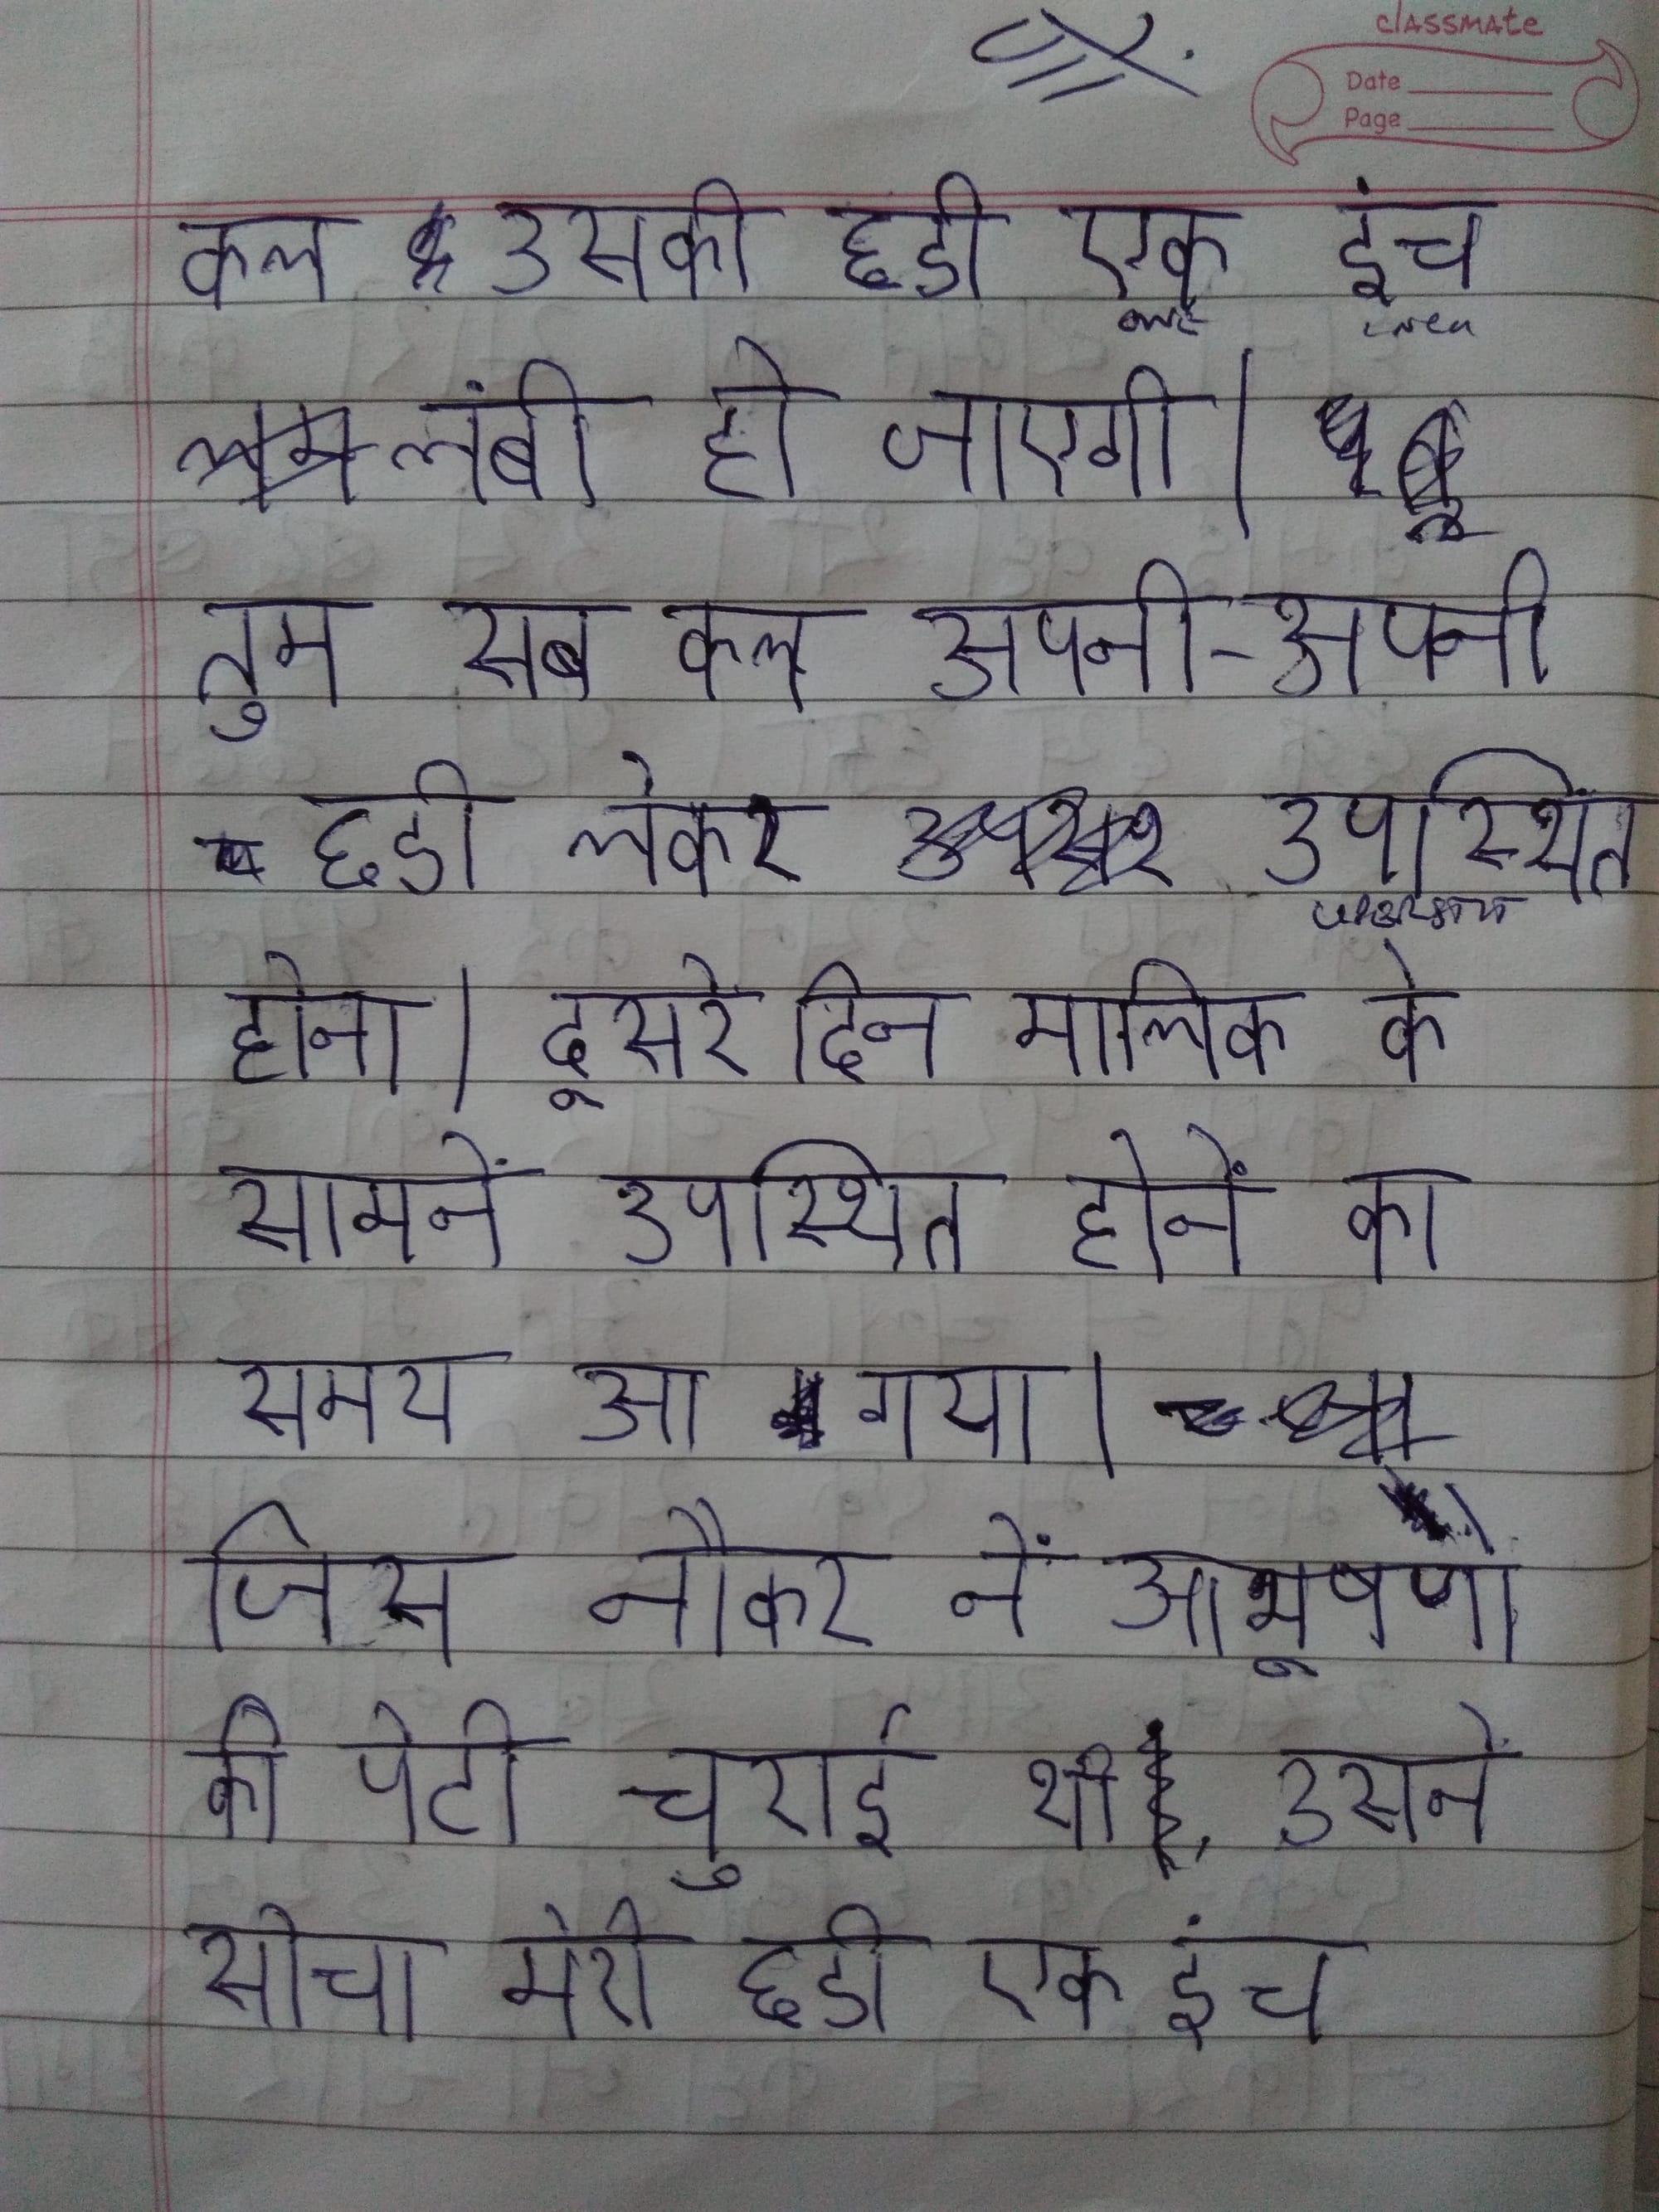 classmate
Date
Page
कल उसकी छडी एक इंच
one
लंबी हो जाएगी।
तुम सब कल अपनी-अपनी
छडी लेकर उपस्थिंत
होना। दूसरे दिन मालिक के
सामनें उपस्थित होनें का
समय आ गया।
जिस नौकर नें आभूषणो
की पेटी चुराई थी, उसनें
सोचा मेरी छडी एक इंच